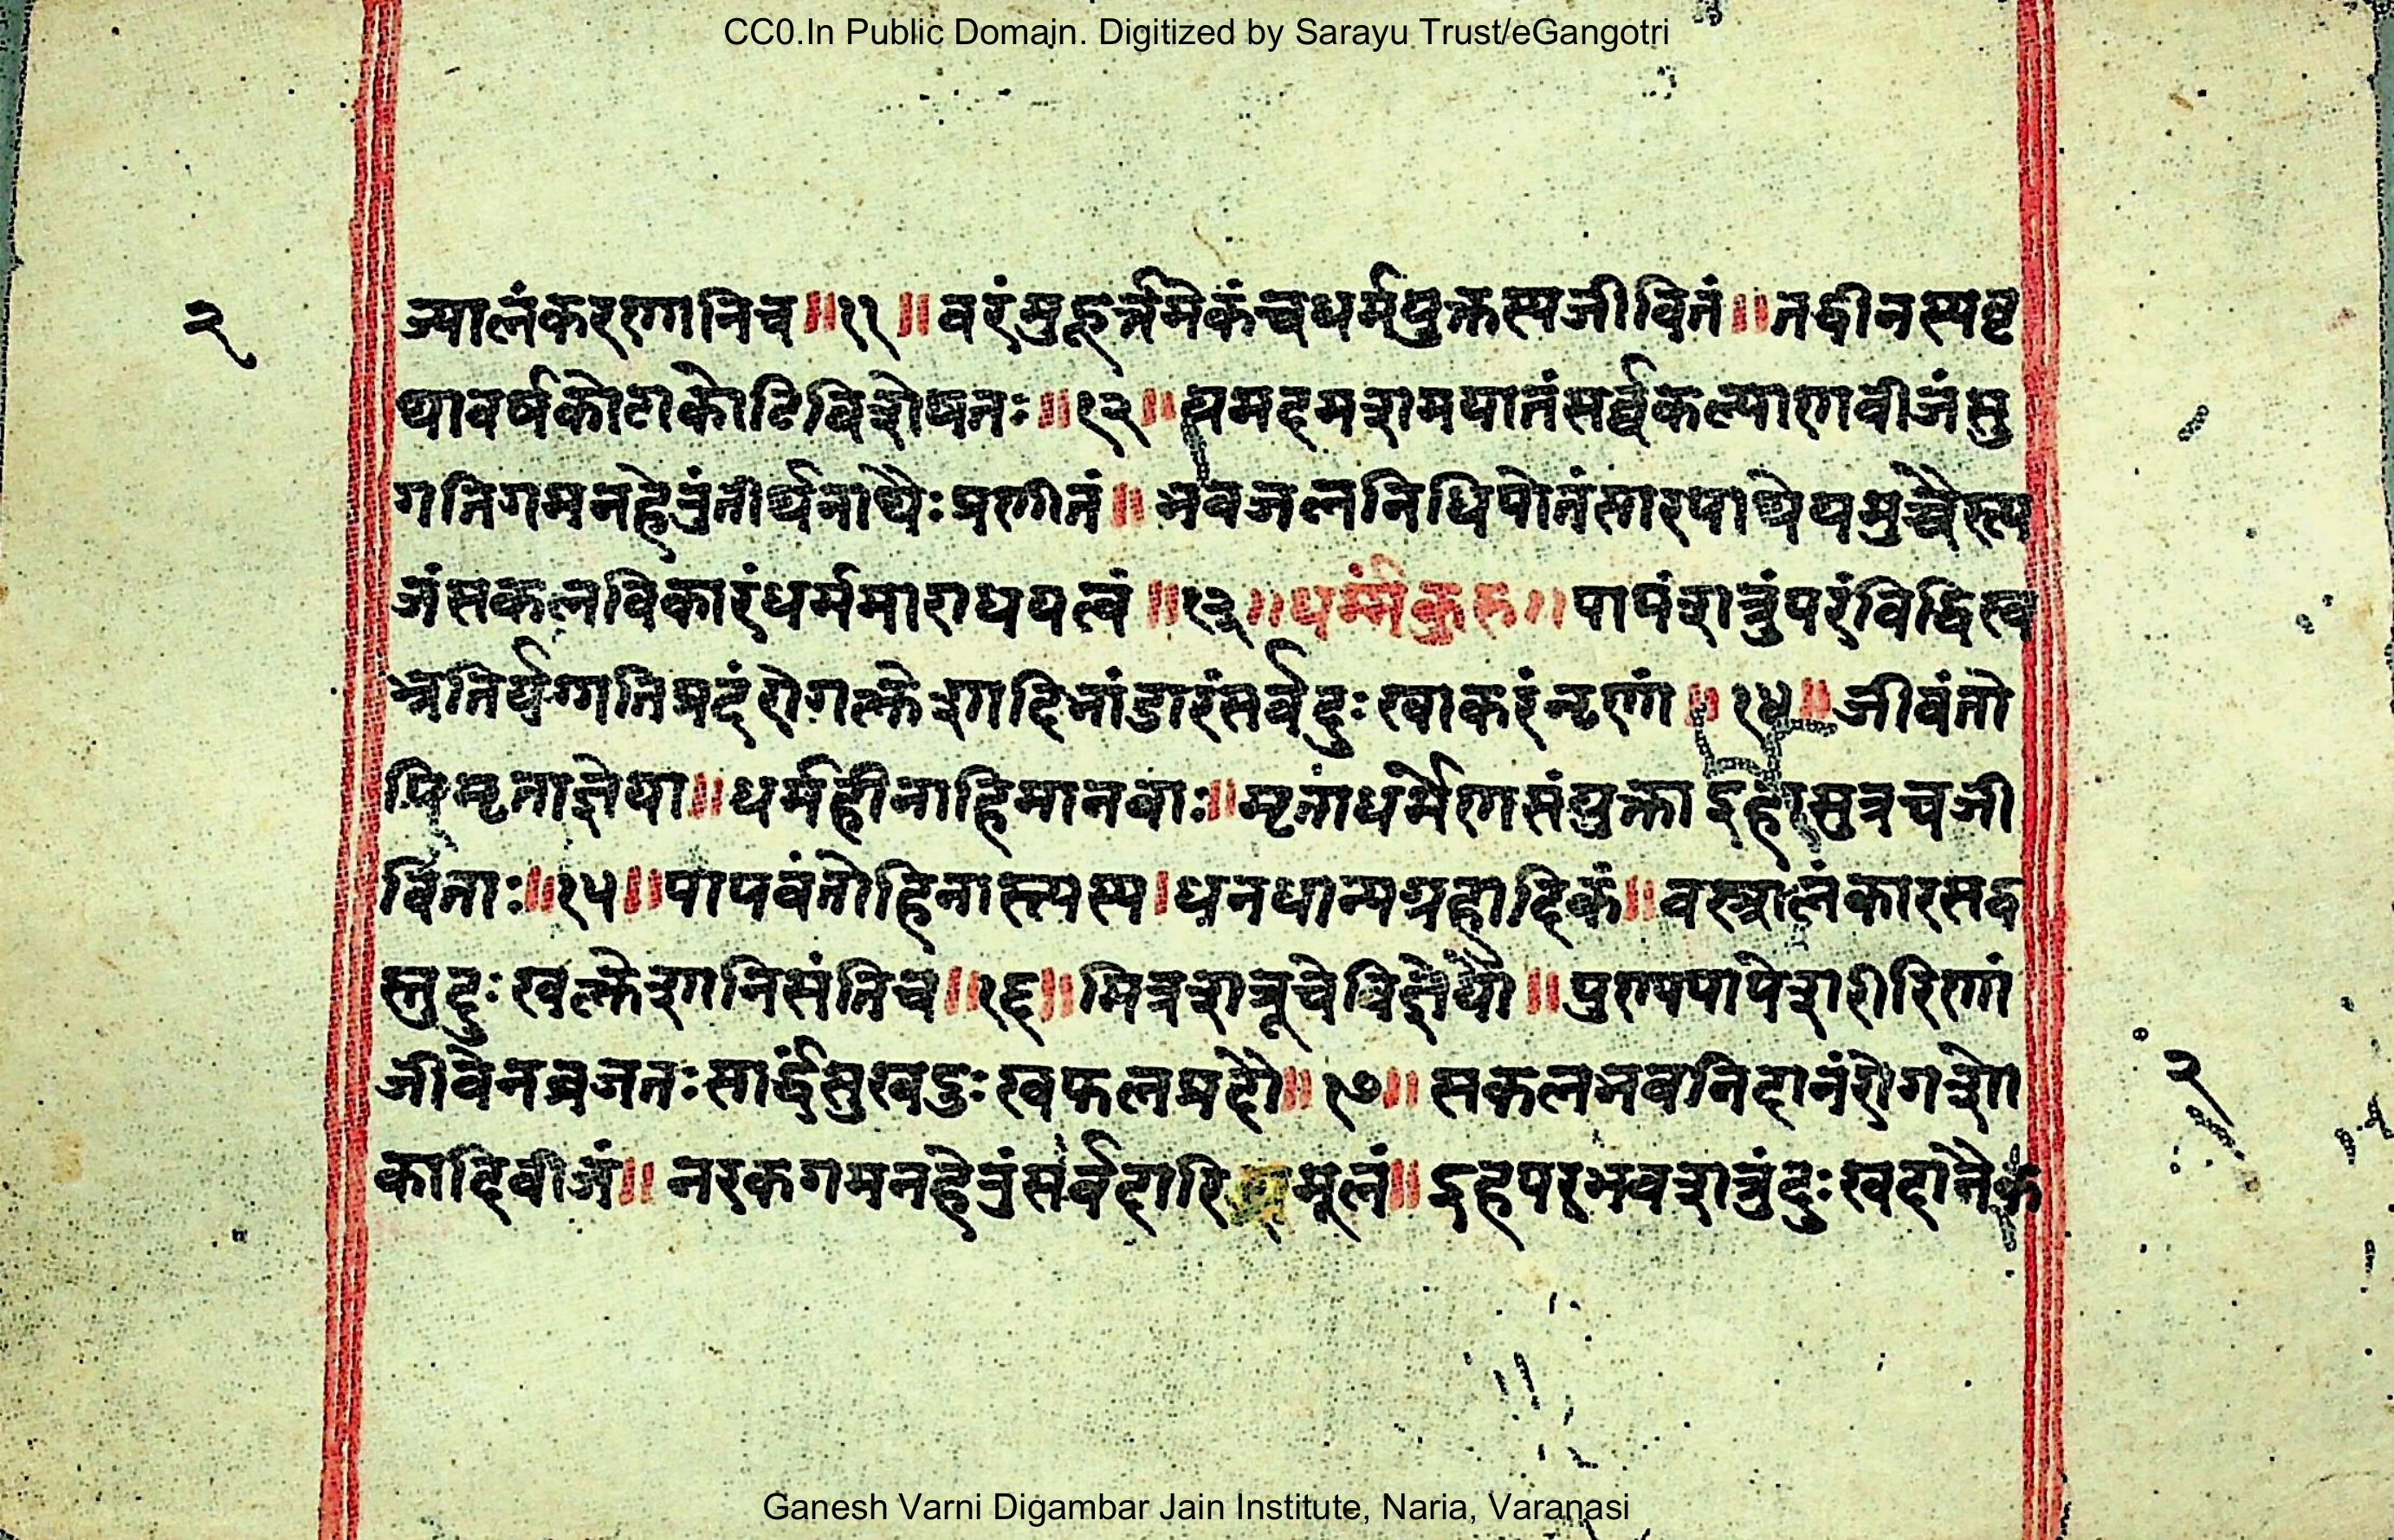 CC0.In Public Domain. Digitized by Sarayu Trust/eGangotri
२
ज्यालंकरणानिच॥११॥वरंमुहूर्त्तमेकंचधर्मयुक्तस्यजीवितं॥तद्धीनस्यवृ
थावर्षकोटाकोटिविशेषतः॥१२॥यमदमशमयातंसर्व्वकल्याणवीजंसु
गतिगमनहेतुंतीर्थनाथैःप्रणीतं॥भवजलनिधिपोतंसारपाथेयमुच्चैस्त्य
जंसकलविकारंधर्ममाराधयत्वं॥१३॥धर्म्मंकुरु॥पापंशत्रुंपरंविद्धिस्व
भ्रतिर्यग्गतिप्रदंरोगक्लेशादिभांडारंसर्वदुःखाकरंनृणां॥१४॥जीवंतो
पिमृताज्ञेया॥धर्महीनाहिमानवाः॥मृतांधर्मेणसंयुक्ताइहामुत्रचजी
विताः॥१५॥पापवंतोहिनास्त्यस्य।धनधान्यग्रहादिकं॥वस्त्रालंकारसद्व
स्तुदुःखक्लेशानिसंतिच॥१६॥मित्रशत्रूचेविज्ञेयौ॥पुण्यपापेशरीरिणां
जीवेनव्रजतःसार्द्धंसुखदुःखफलप्रदौ॥१७॥सकलभवनिदानंरोगशो
कादिवीजं॥नरकगमनहेतुंसर्वदारिद्र्मूलं॥इहपरभवशत्रुंदुःखदानैक
२
Ganesh Varni Digambar Jain Institute, Naria, Varanasi